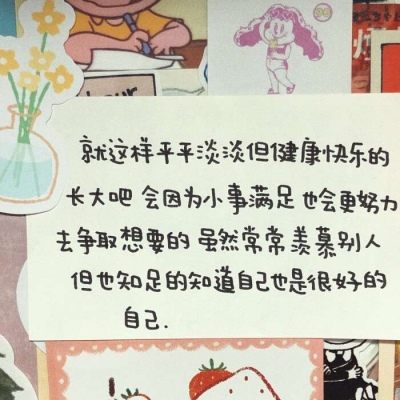 就这样平平淡淡但健康快乐的
长大吧 会因为小事满足 也会更努力
去争取想要的 虽然常常羡慕别人
但也知足的知道自己也是很好的
自己.